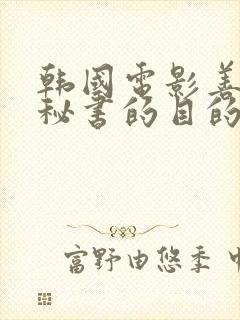 韩国电影善
秘书的目的
富野由悠季 中